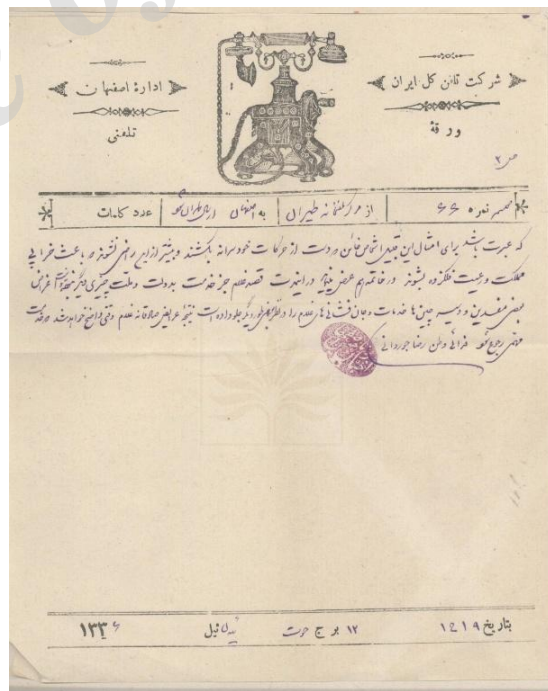 شرکت تلفن کل ایران
ادارهٔ اصفهان
ورقهٔ
تلفنی
ص ۲
نمره ۶۶ از مرکز تلفنخانه طهران به اصفهان عدد کلمات
که عبرت باشد برای امثال این قبیل اشخاص خائن و دست از حرکات خودسرانه بکشند و بیشتر از این راضی نشوند که باعث خرابی
مملکت و رعیت فلکزده بشوند و در خاتمه هم عرض میکنم در اینصورت قصد غلام جز خدمت بدولت و ملت چیزی دیگر
بعضی مفسدین و دسیسه چین ها خدمات و جان فشانی های غلام را در نظر دیگر جلوه داده است نتیجه عرایض صادقانه غلام وقتی واضع خواهد شد
رجوع فدائی وطن رضا جوزدانی
بتاریخ ۱۹ ۱۲ برج حوت ئیل ۱۳۳۶